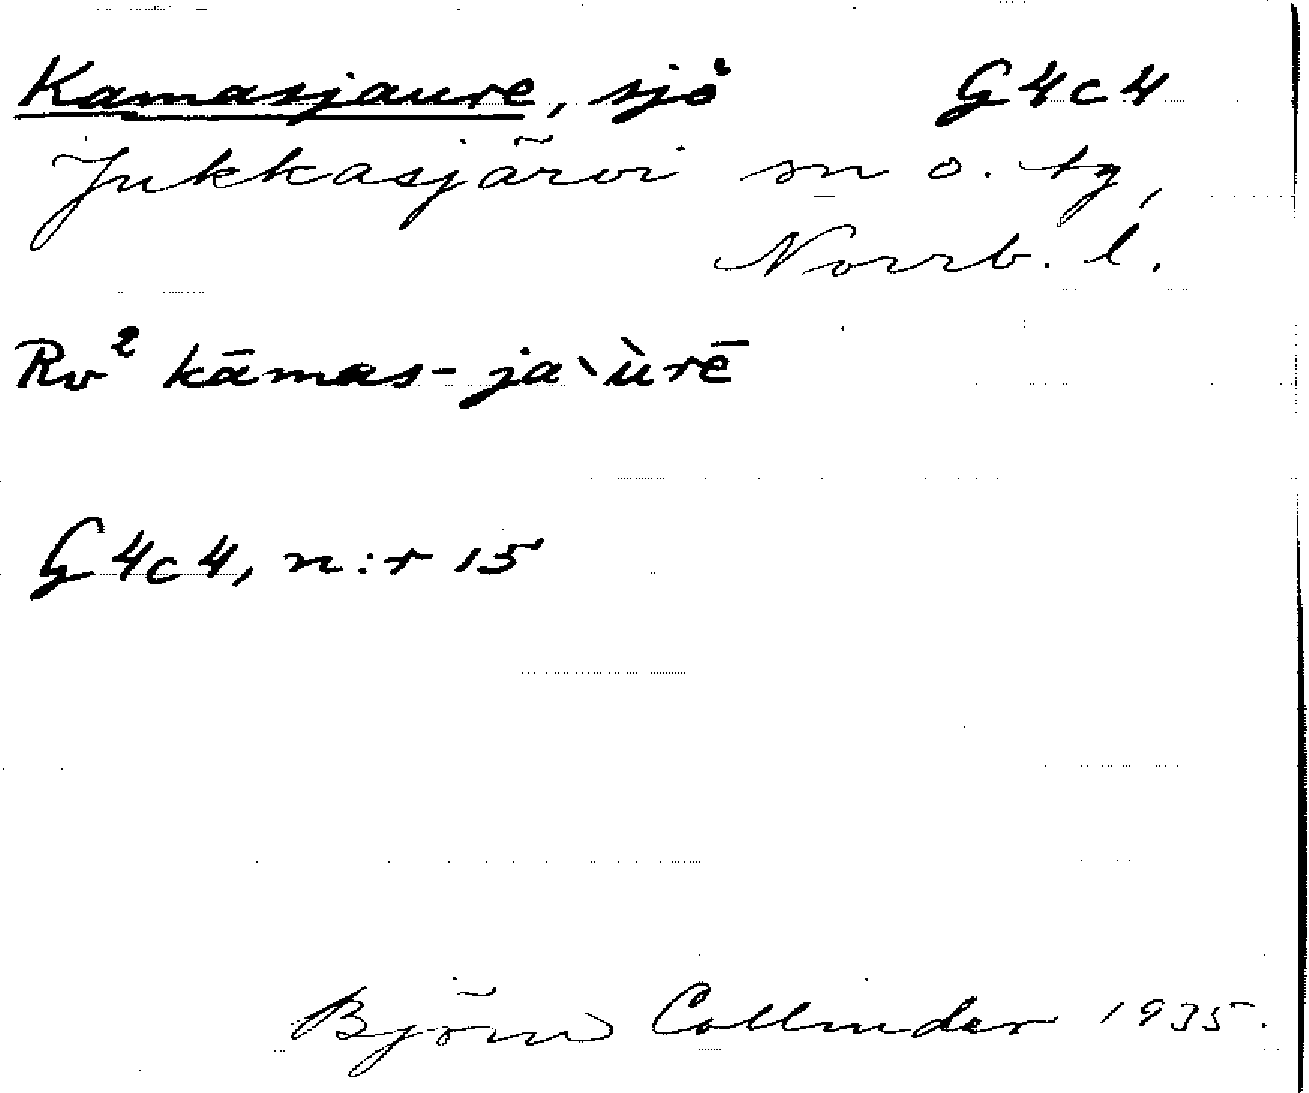 Kamasjaure, sjö G4c4
Jukkasjärvi sn o. tg,
Norrb. l.
Rv² kāmas-ja`ùrē
G4c4, n:r 15
Björn Collinder 1935.